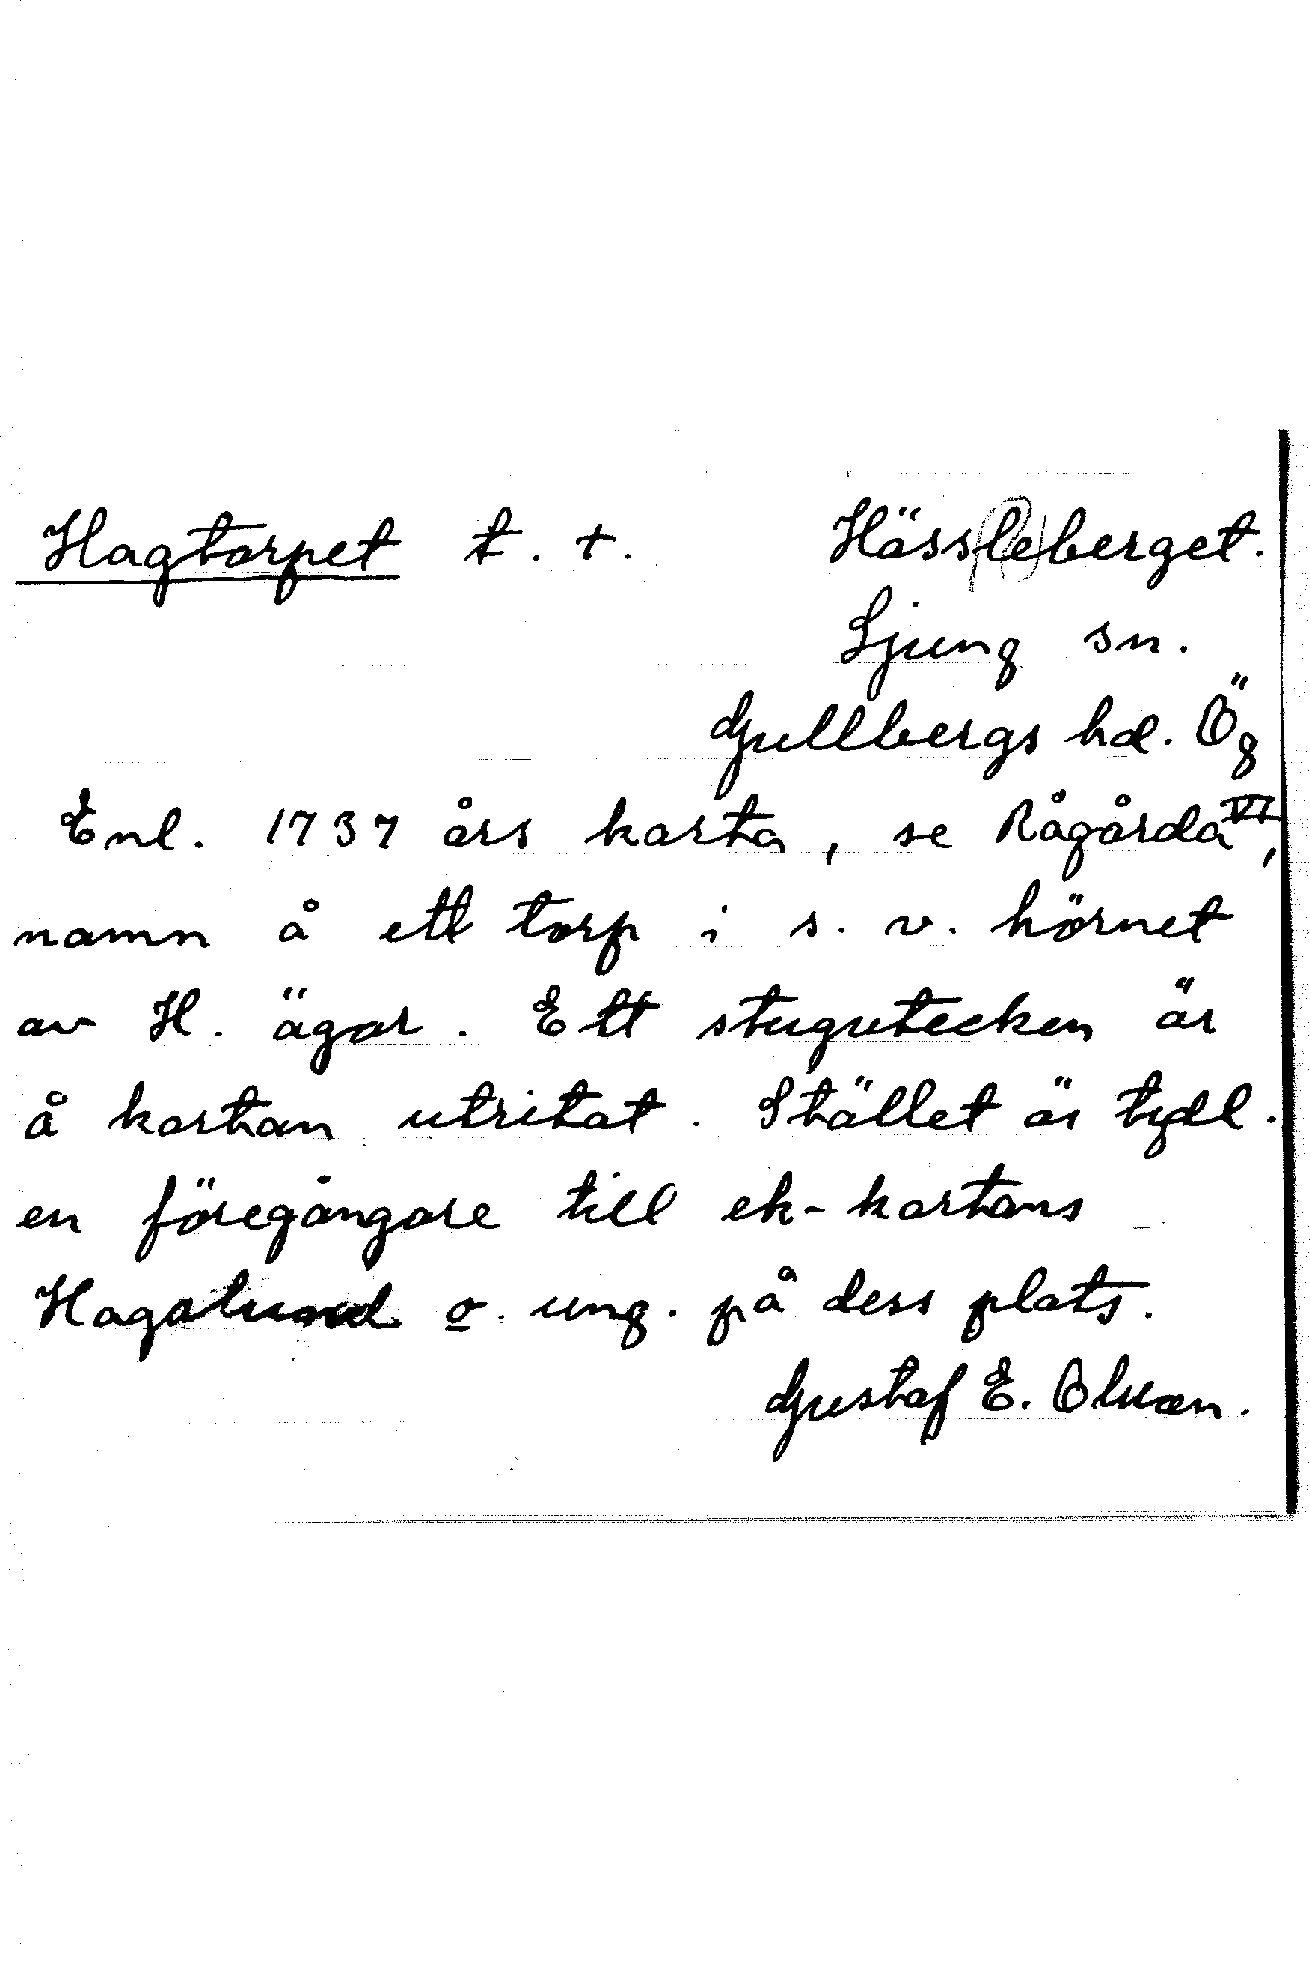 Hagtorpet t. +. Hässleberget.
Ljung sn.
Gullbergs hd. Ög
Enl. 1737 års karta, se Rågårda VI,
namn å ett torp i s. v. hörnet
av H. ägor. Ett stugutecken är
å kartan utritat. Stället är tydl.
en föregångare till ek-kartans
Hagalund o. ung. på dess plats.
Gustaf E. Olsson.